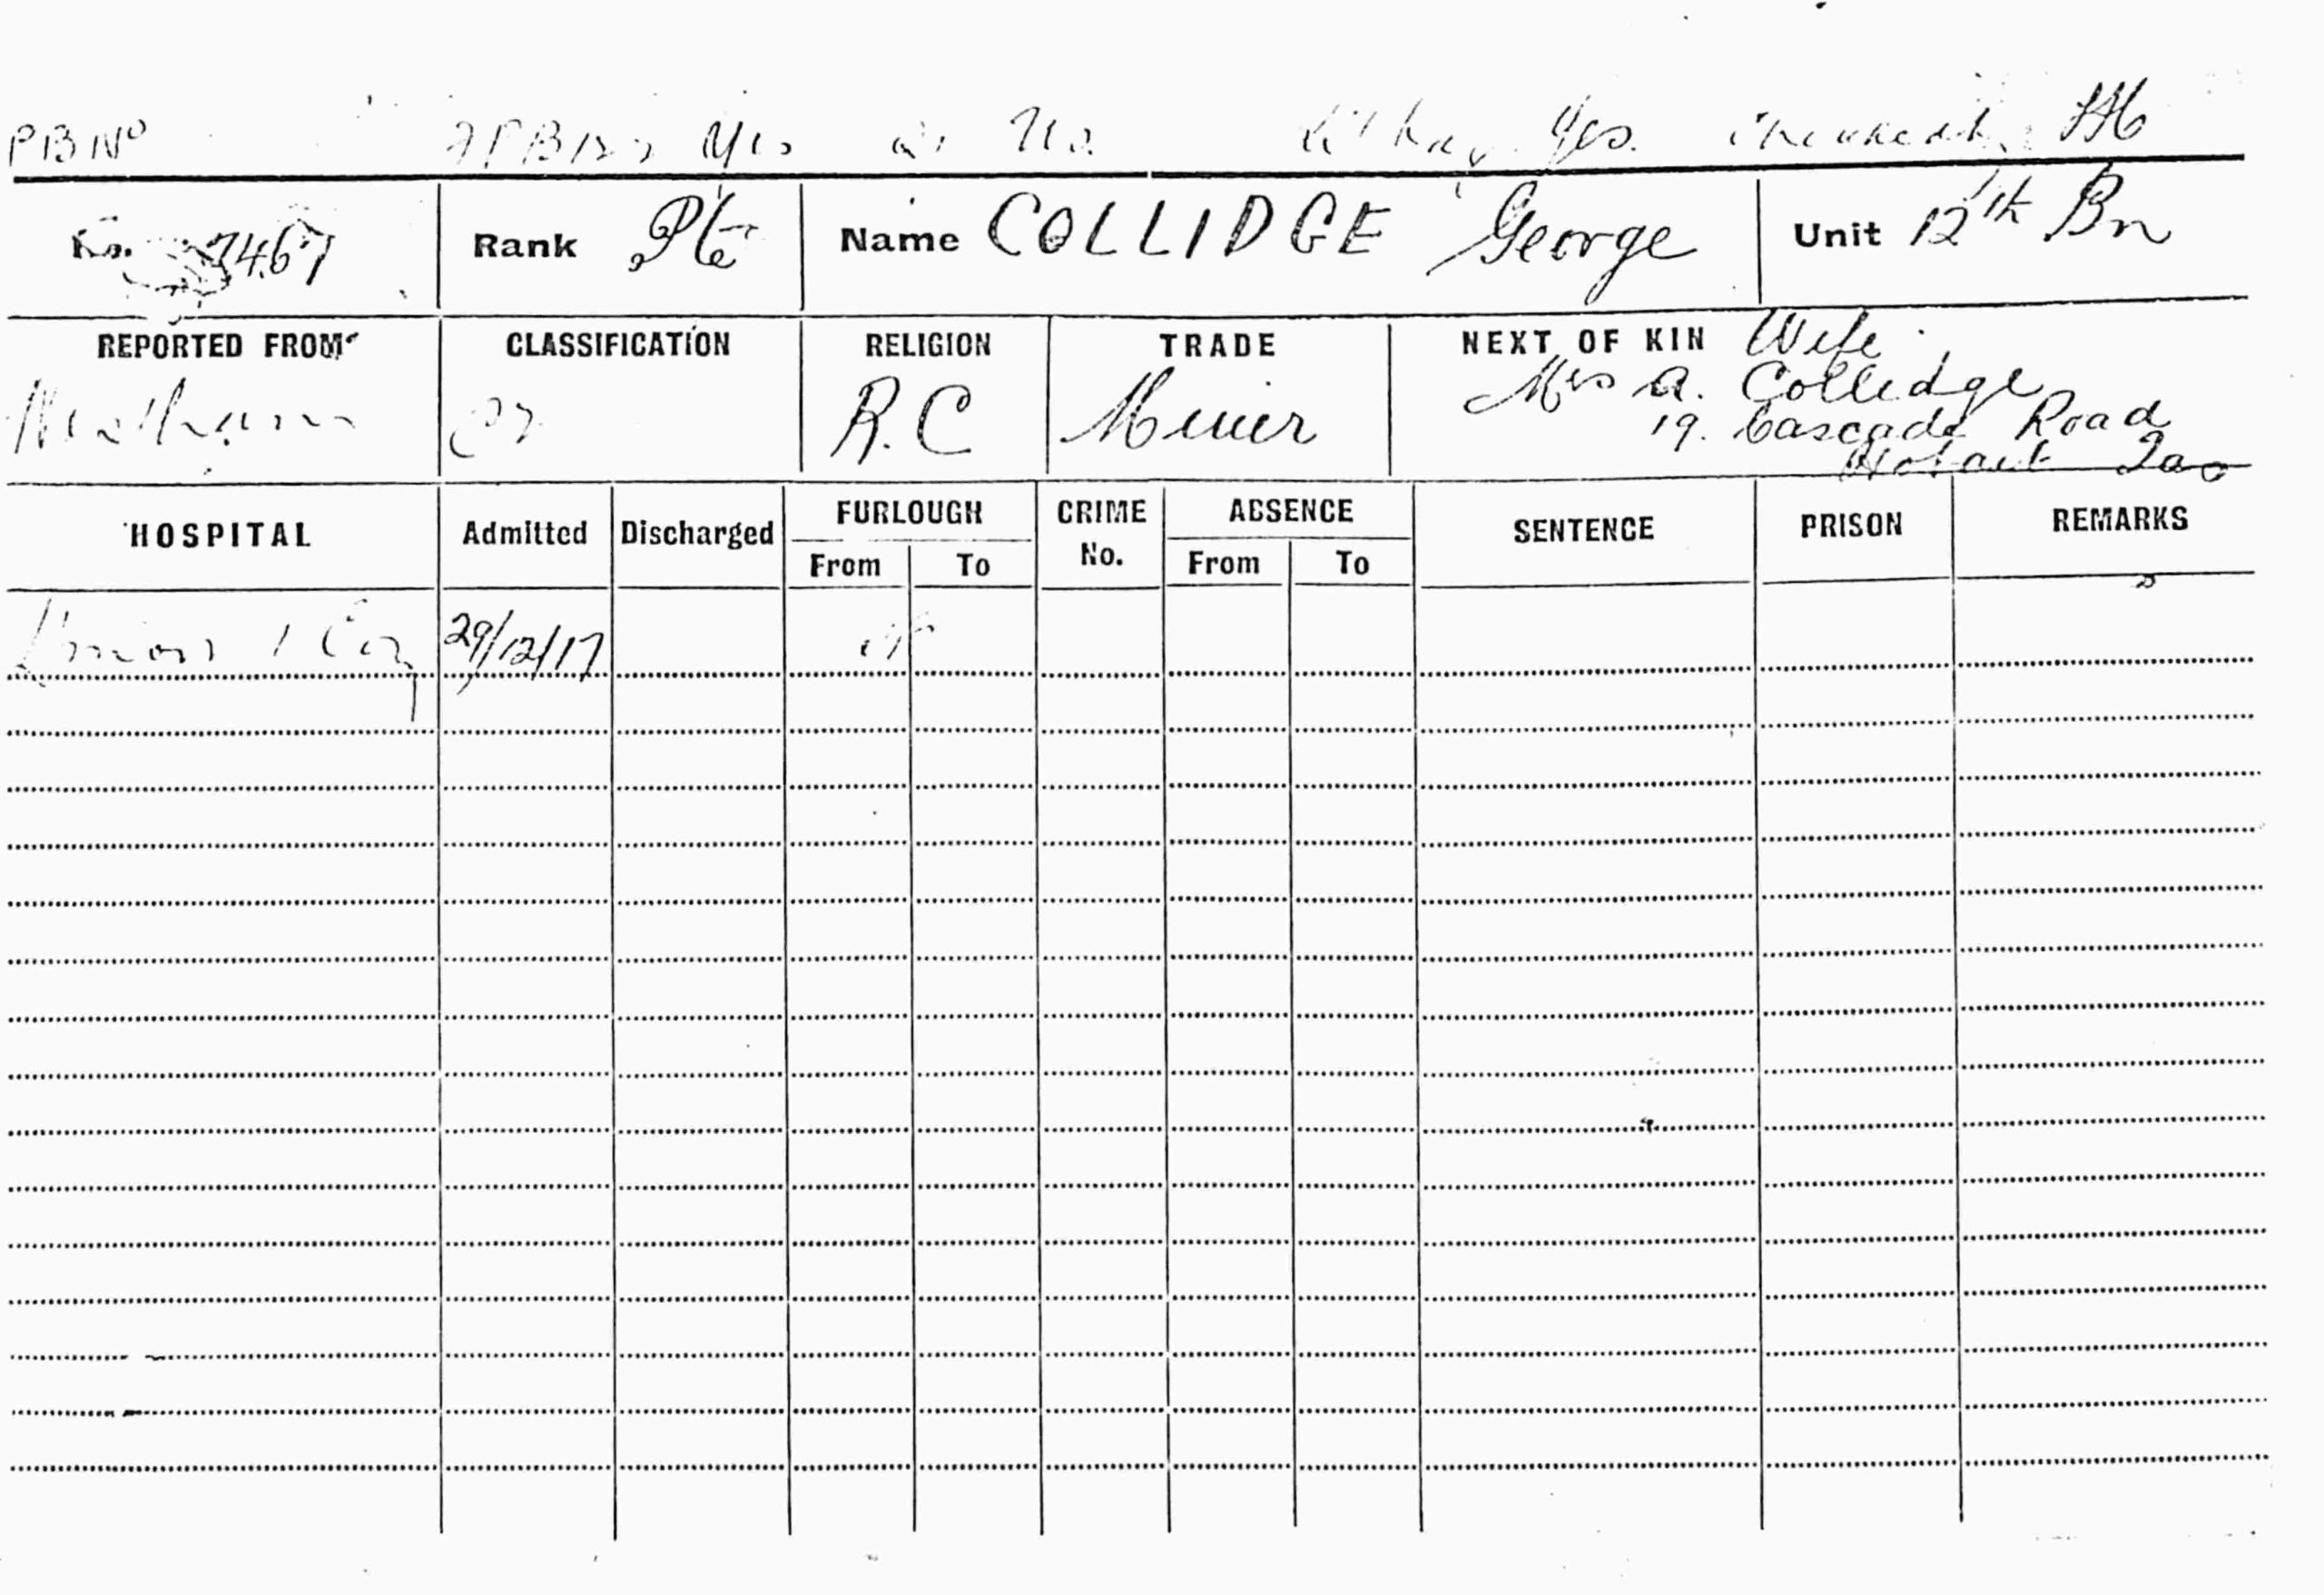 PB No Yes No. Yes.
No. 7467 Rank Pte Name COLLIDGE George Unit 12th Bn
REPORTED FROM CLASSIFICATION RELIGION TRADE NEXT OF KIN Wife
R.C Miner Mrs A. Collidge
19. Cascade Road
Hobart Tas
HOSPITAL Admitted Discharged FURLOUGH CRIME No. ABSENCE SENTENCE PRISON REMARKS
From To From To
29/12/17